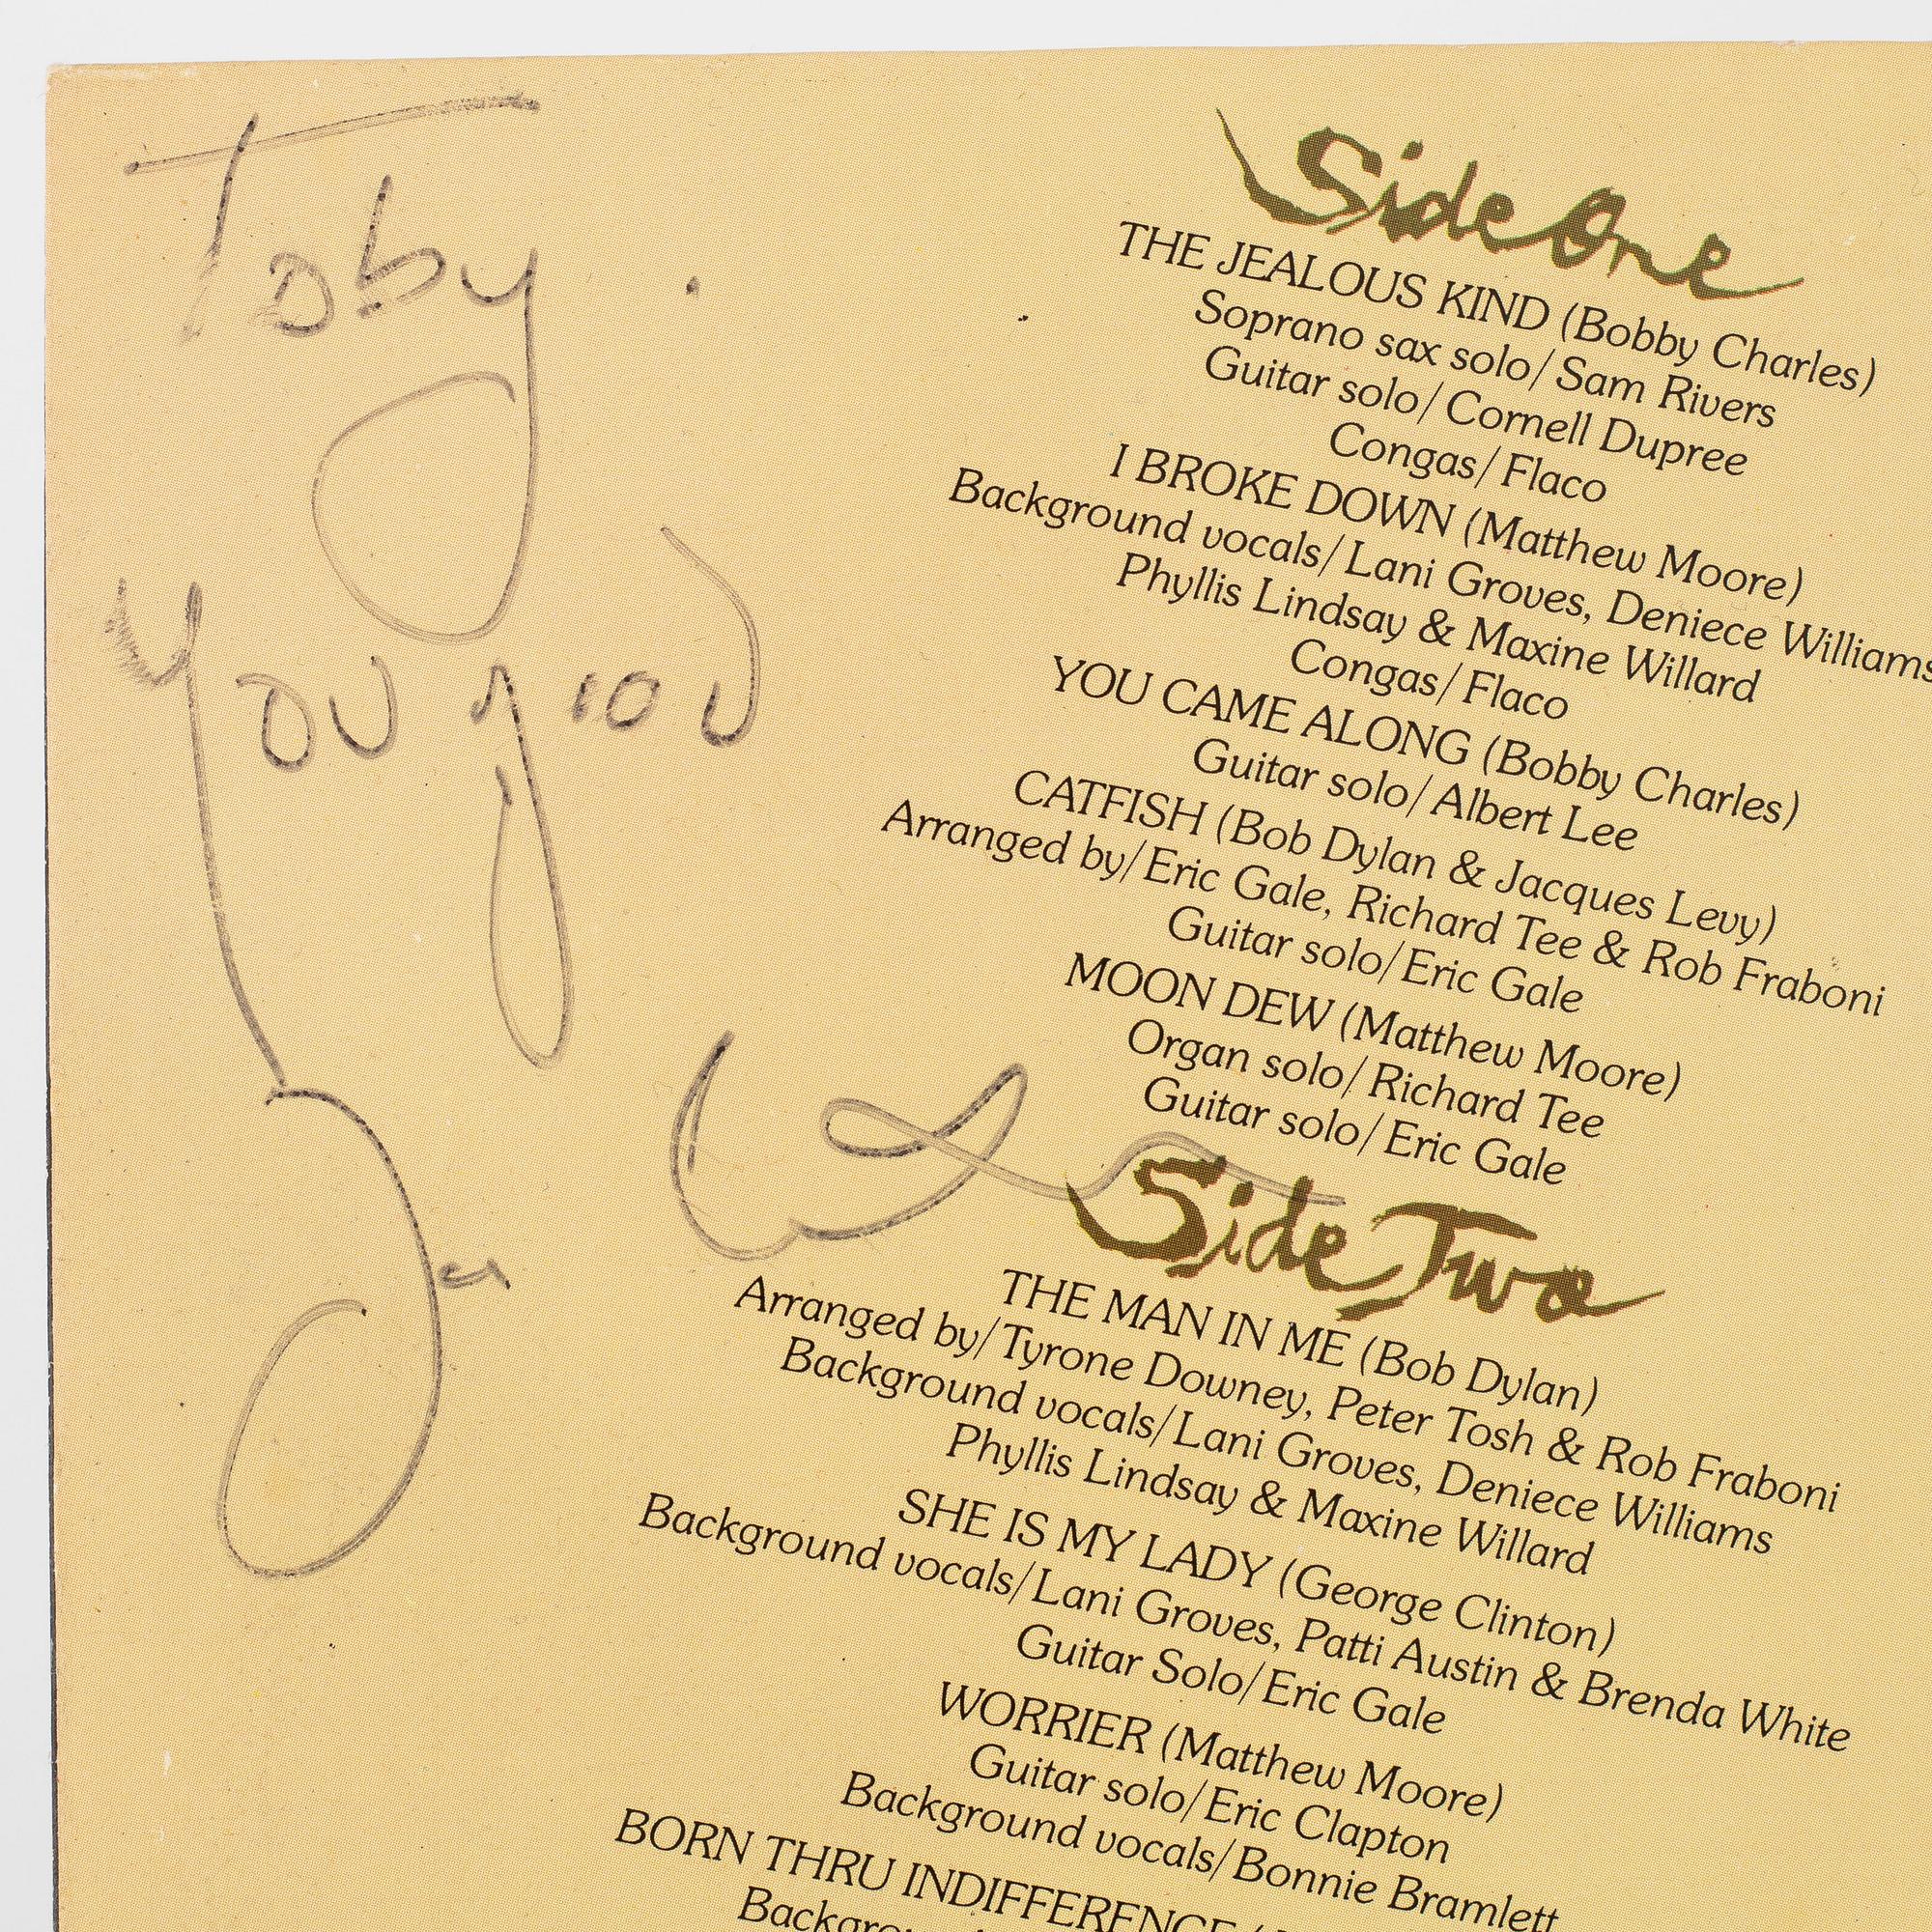 Toby.
You
Joe
Side One
THE JEALOUS KIND (Bobby Charles)
Soprano sax solo/Sam Rivers
Guitar solo/Cornell Dupree
Congas/Flaco
I BROKE DOWN (Matthew Moore)
Background vocals/Lani Groves, Deniece Williams
Phyllis Lindsay & Maxine Willard
Congas/Flaco
YOU CAME ALONG (Bobby Charles)
Guitar solo/Albert Lee
CATFISH (Bob Dylan & Jacques Levy)
Arranged by/Eric Gale, Richard Tee & Rob Fraboni
Guitar solo/Eric Gale
MOON DEW (Matthew Moore)
Organ solo/Richard Tee
Guitar solo/Eric Gale
Side Two
THE MAN IN ME (Bob Dylan)
Arranged by/Tyrone Downey, Peter Tosh & Rob Fraboni
Background vocals/Lani Groves, Deniece Williams
Phyllis Lindsay & Maxine Willard
SHE IS MY LADY (George Clinton)
Background vocals/Lani Groves, Patti Austin & Brenda White
Guitar Solo/Eric Gale
WORRIER (Matthew Moore)
Guitar solo/Eric Clapton
Background vocals/Bonnie Bramlett
BORN THRU INDIFFERENCE